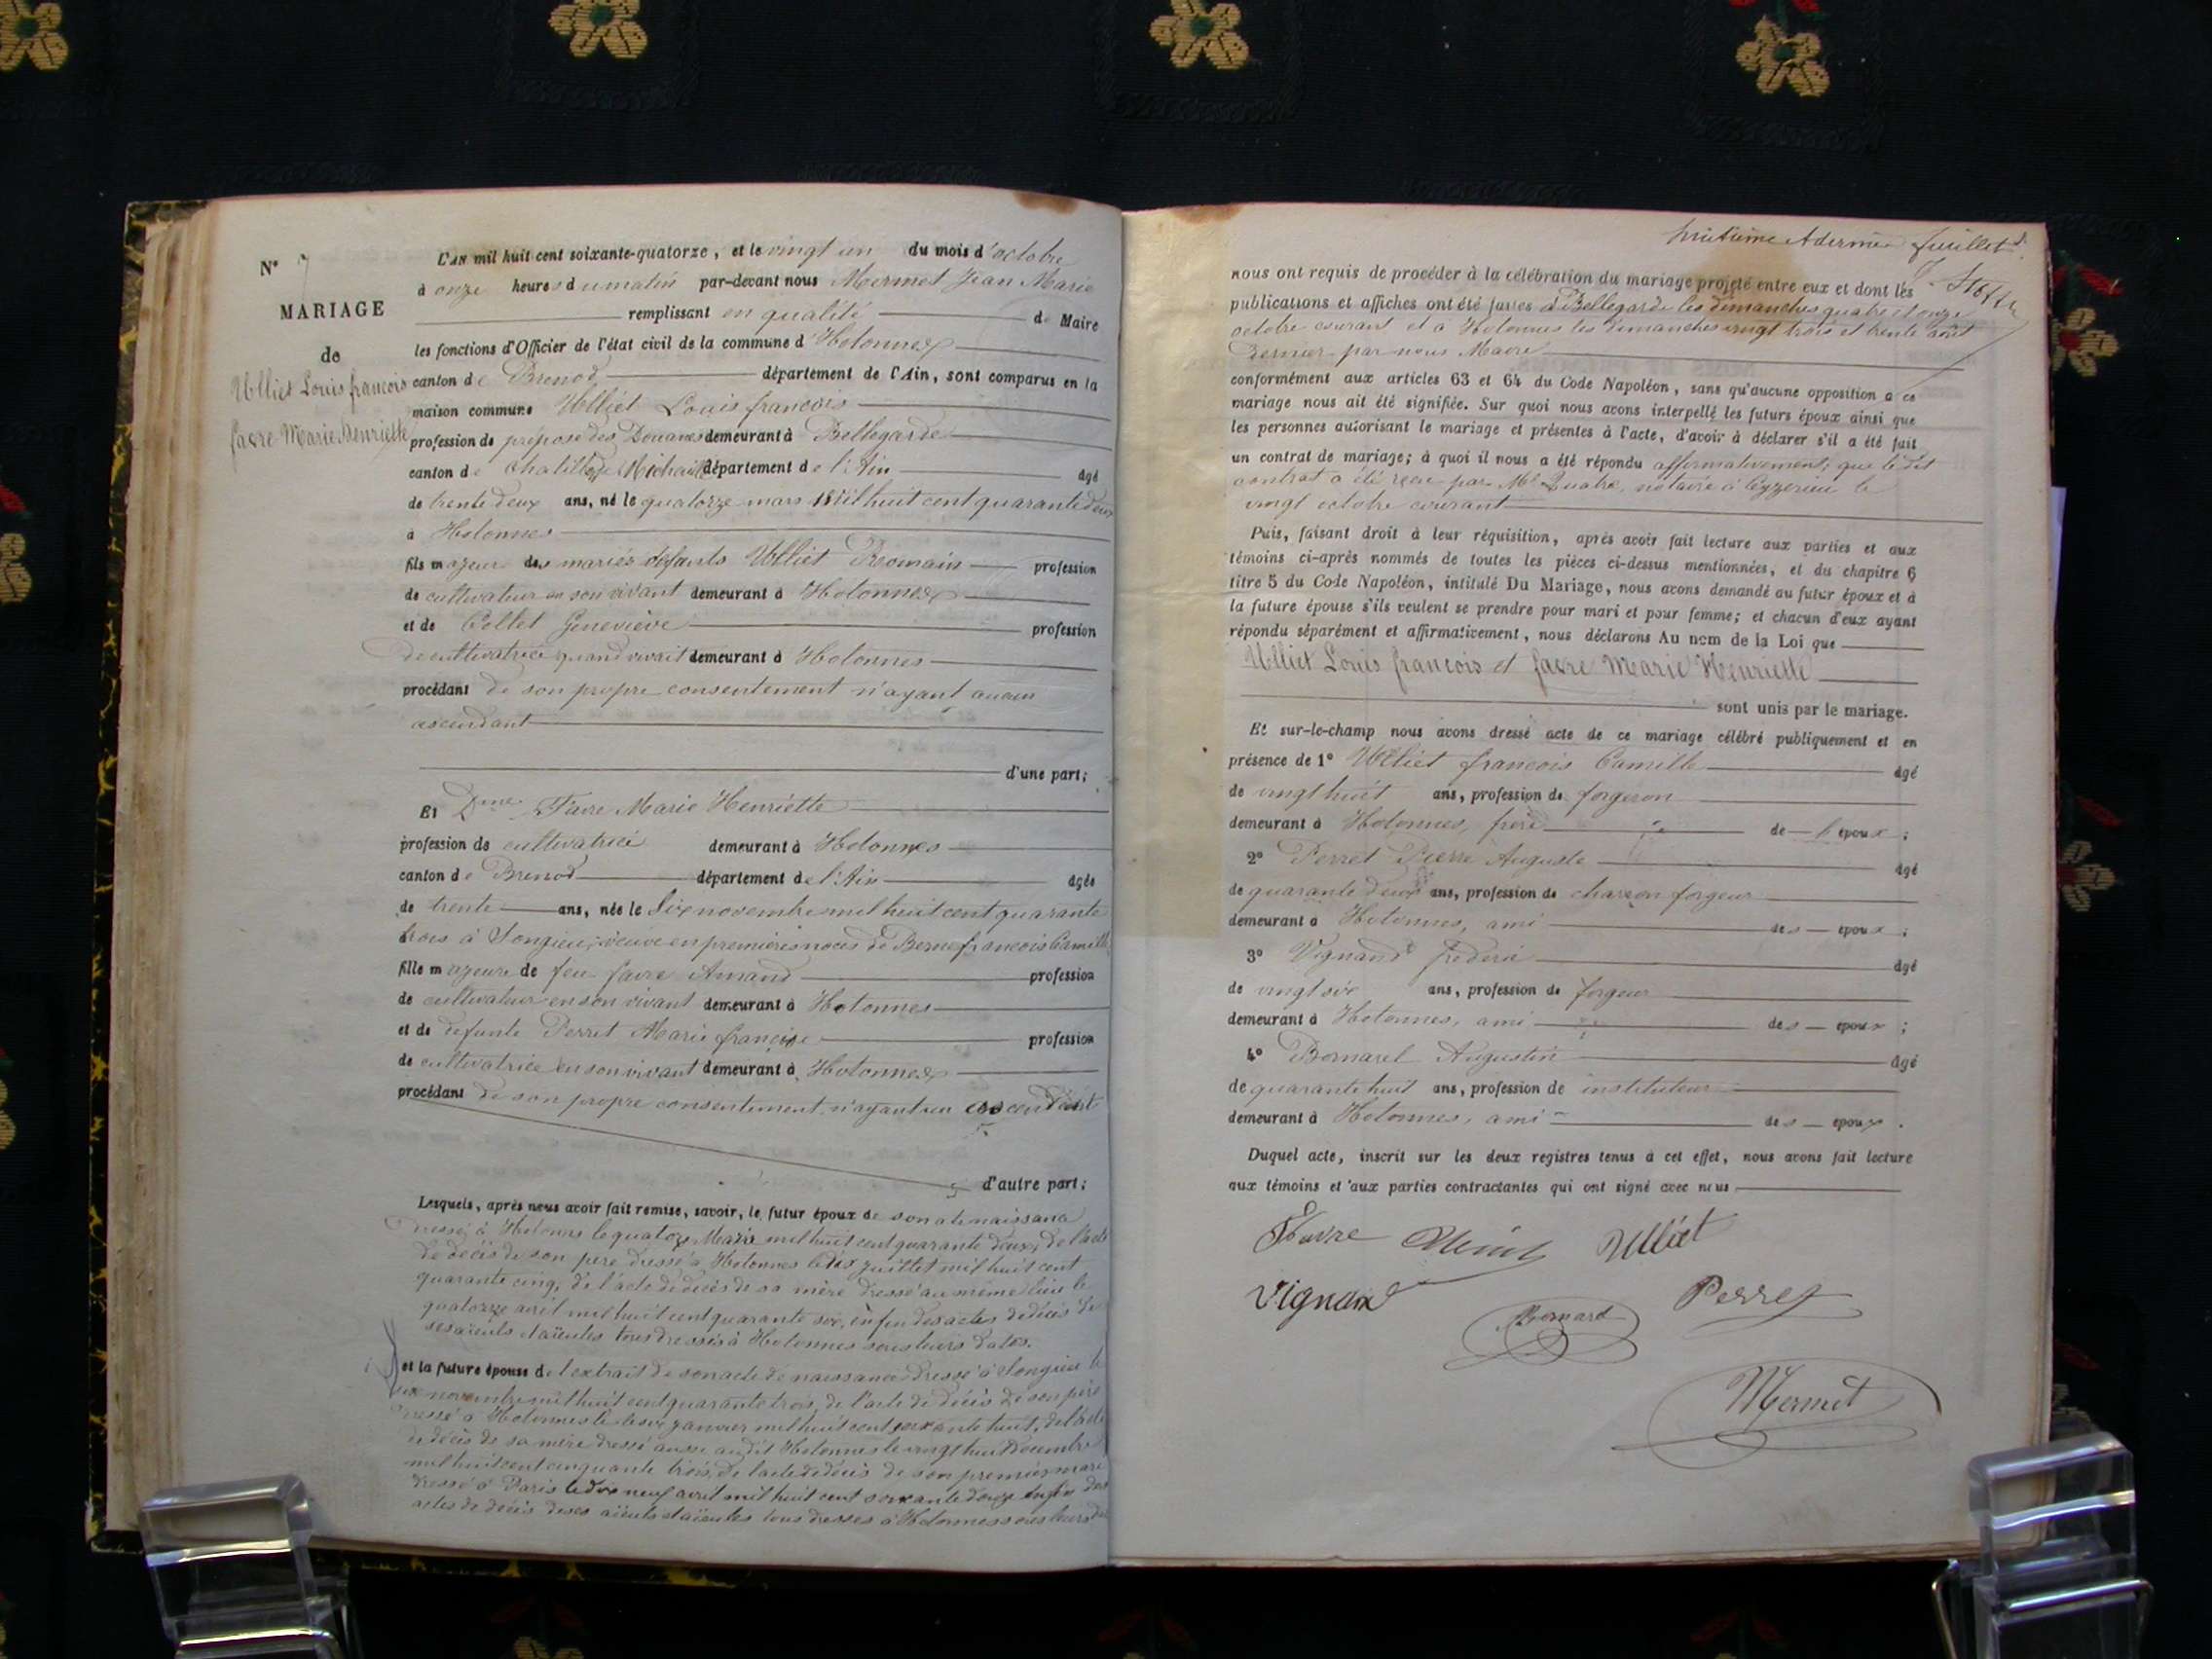 N° 7
MARIAGE
de
Ulliet Louis françois
favre Marie Henriette
L'AN mil huit cent soixante-quatorze, et le vingt un du mois d'octobre
à onze heures du matin par-devant nous Mermet Jean Marie
remplissant en qualité de Maire
les fonctions d'Officier de l'état civil de la commune d'Hotonnes
canton de Brenod, département de l'Ain, sont comparus en la
maison commune Ulliet Louis françois
profession de préposé des Douanes demeurant à Bellegarde
canton de Chatillon de Michaille département de l'Ain âgé
de trente deux ans, né le quatorze mars mil huit cent quarante deux
à Hotonnes
fils majeur des mariés défunts Ulliet Romain profession
de cultivateur en son vivant demeurant à Hotonnes
et de Collet Geneviève profession
de cultivatrice quand vivait demeurant à Hotonnes
procédant de son propre consentement n'ayant aucun
ascendant
d'une part;
Et Dme Favre Marie Henriette
profession de cultivatrice demeurant à Hotonnes
canton de Brenod département de l'Ain âgée
de trente ans, née le Six novembre mil huit cent quarante
trois à Songieu, veuve en premières noces de Berne françois Camille
fille majeure de feu favre Amand profession
de cultivateur en son vivant demeurant à Hotonnes
et de defunte Perret Marie françoise profession
de cultivatrice en son vivant demeurant à Hotonnes
procédant de son propre consentement n'ayant ascendant
d'autre part;
Lesquels, après nous avoir fait remise, savoir, le futur époux de son acte naissance
dressé à Hotonnes le quatorze Mars mil huit cent quarante deux, de l'acte
de décès de son père dressé à Hotonnes le dix juillet mil huit cent
quarante cinq, de l'acte de décès de sa mère dressé au même lieu le
quatorze avril mil huit cent quarante six, enfin des actes de décès de
ses aïeuls et aïeules tous dressés à Hotonnes sous leurs dates.
et la future épouse de l'extrait de son acte de naissance dressé à Songieu le
six novembre mil huit cent quarante trois, de l'acte de décès de son père
dressé à Hotonnes le janvier mil huit cent soixante huit, de l'acte
de décès de sa mère dressé aussi audit Hotonnes le vingt huit Décembre
mil huit cent cinquante trois, de l'acte de décès de son premier mari
dressé à Paris le dix neuf avril mil huit cent soixante douze enfin des
actes de décès de ses aïeuls et aïeules tous dressés à Hotonnes sous leurs
huitième et dernier feuillet
nous ont requis de procéder à la célébration du mariage projeté entre eux et dont les
publications et affiches ont été faites à Bellegarde les dimanches quatre et onze
octobre courant et à Hotonnes les dimanches vingt trois et trente août
dernier par nous Maire
conformément aux articles 63 et 64 du Code Napoléon, sans qu'aucune opposition à ce
mariage nous ait été signifiée. Sur quoi nous avons interpellé les futurs époux ainsi que
les personnes autorisant le mariage et présentes à l'acte, d'avoir à déclarer s'il a été fait
un contrat de mariage; à quoi il nous a été répondu affirmativement; que le dit
contrat a été reçu par Me notaire à Ceyzerieu le
vingt octobre courant
Puis, faisant droit à leur réquisition, après avoir fait lecture aux parties et aux
témoins ci-après nommés de toutes les pièces ci-dessus mentionnées, et du chapitre 6
titre 5 du Code Napoléon, intitulé Du Mariage, nous avons demandé au futur époux et à
la future épouse s'ils veulent se prendre pour mari et pour femme; et chacun d'eux ayant
répondu séparément et affirmativement, nous déclarons Au nom de la Loi que
Ulliet Louis françois et favre Marie Henriette
sont unis par le mariage.
Et sur-le-champ nous avons dressé acte de ce mariage célébré publiquement et en
présence de 1° Ulliet françois Camille âgé
de vingt huit ans, profession de forgeron
demeurant à Hotonnes, frère de l'époux;
2° Perret Pierre Auguste âgé
de quarante deux ans, profession de charron forgeur
demeurant à Hotonnes, ami des époux;
3° Vignand fréderic âgé
de vingt six ans, profession de forgeur
demeurant à Hotonnes, ami des époux;
4° Bornarel Augustin âgé
de quarante huit ans, profession de instituteur
demeurant à Hotonnes, ami des époux.
Duquel acte, inscrit sur les deux registres tenus à cet effet, nous avons fait lecture
aux témoins et aux parties contractantes qui ont signé avec nous
Favre Ulliet Ulliet
Vignand Perret
Mermet